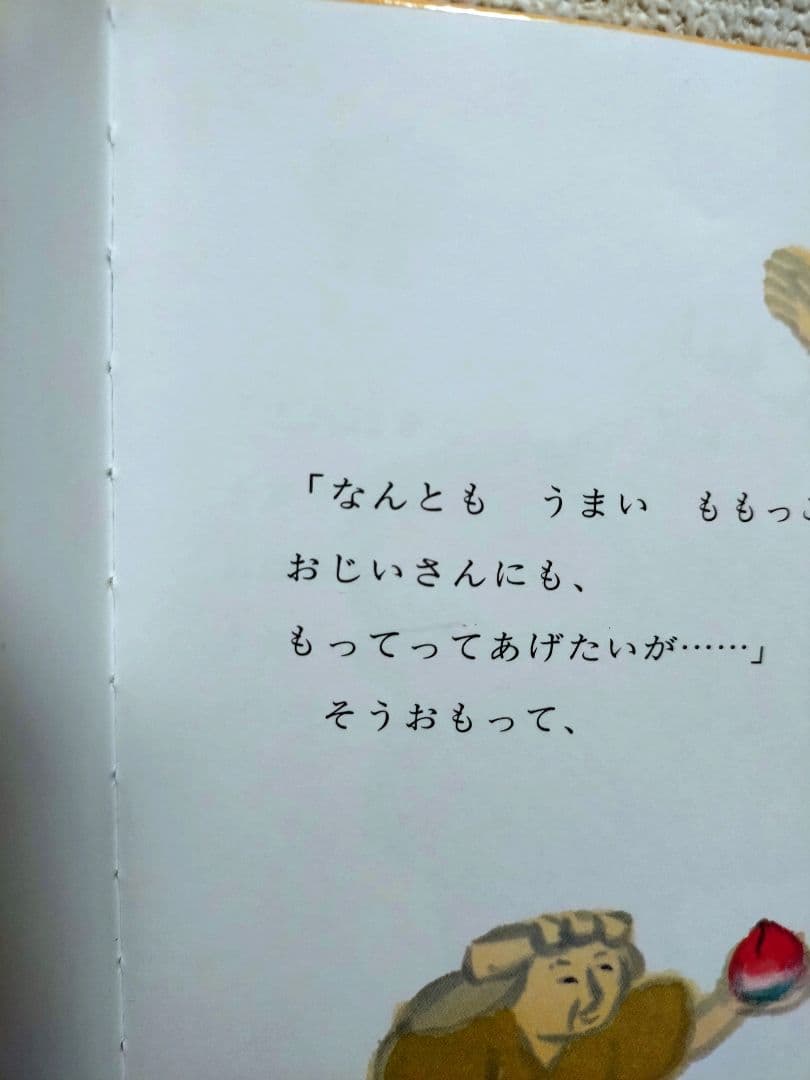 「なんとも　うまい　ももっこ
おじいさんにも、
もってってあげたいが……」
そうおもって、